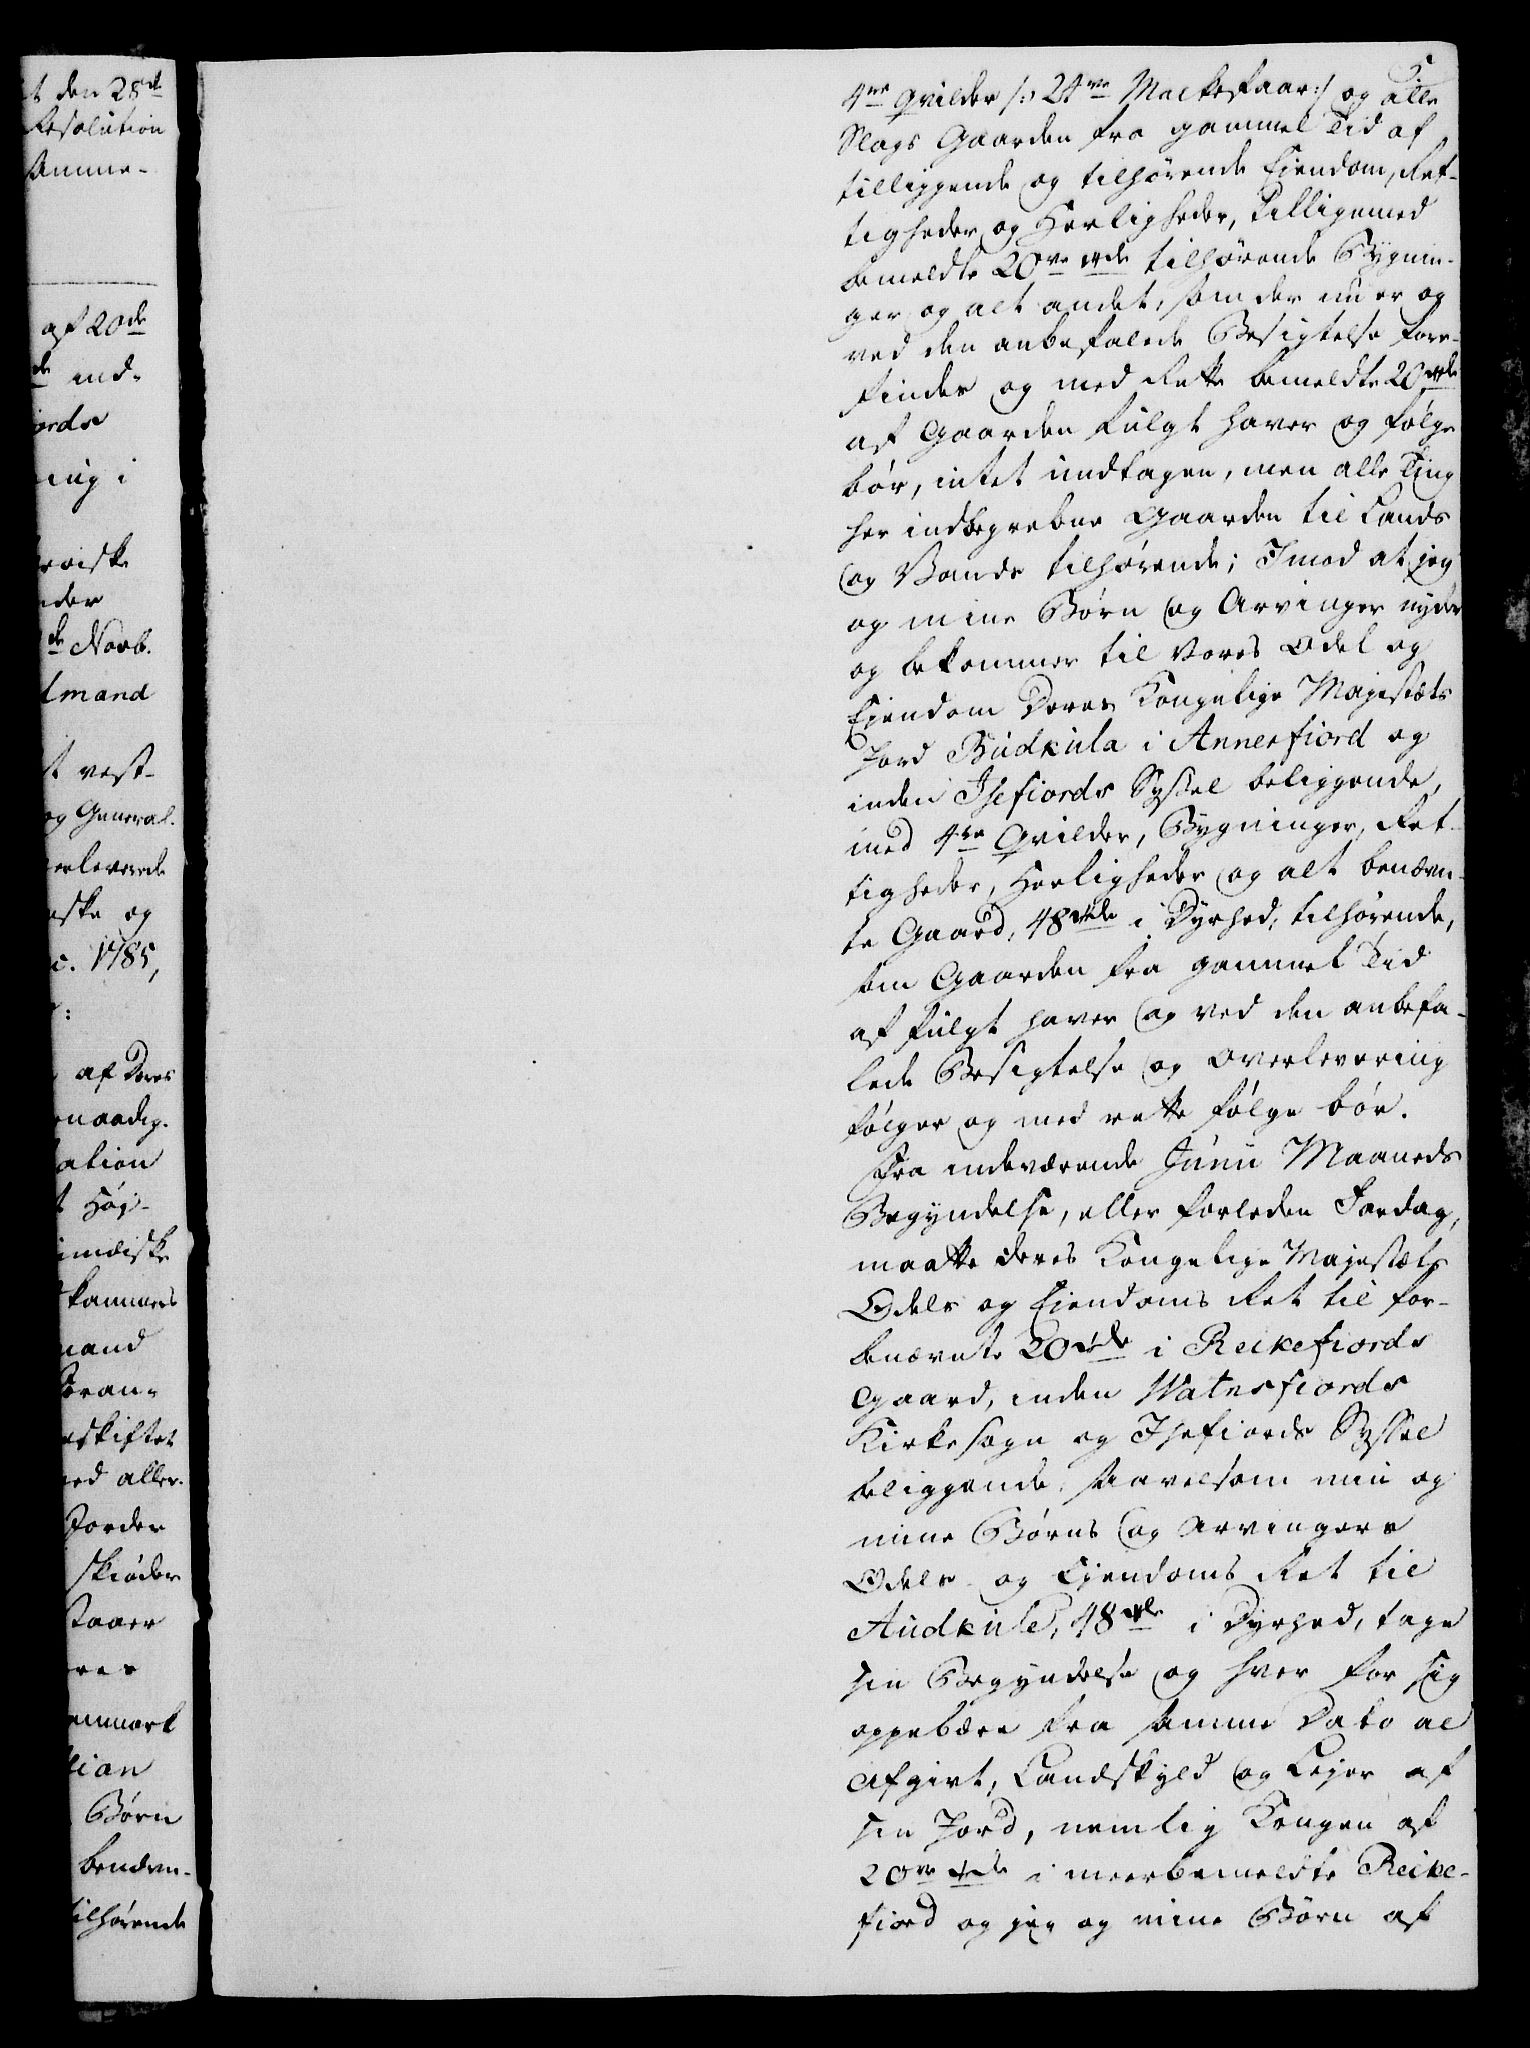 t den 28de
Resolution
Amme-
af 20de
de ind-
iords
ing i
rviske
nder
de Novb.
tmand
t vest-
og General-
erleverede
ske og
c. 1785,
af Deres
naadig-
ation
t Høj-
kammers
mand
foran-
skiftet
ed aller-
Jorder
skiøder
staaer
nmark
tian
Børn
benævn-
tilhørende
5.
4re Qvilder /: 24re Malkefaar :/ og alle
Slags Gaarden fra gammel Tid af
tilliggende og tilhørende Ejendom, Ret-
tigheder og Herligheder, tilligemed
bemeldte 20ve Hde tilhørende Bygnin-
ger og alt andet, som der nu er og
ved den anbefalede Besigtelse fore-
findes og med Rette bemeldte 20 Hde
af Gaarden fulgt haver og følge
bør, intet undtagen, men alle Ting
her indbegrebne Gaarden til Lands
og Vands tilhørende; Imod at jeg
og mine Børn og Arvinger nyder
og bekommer til Vores Odel og
Ejendom Deres Kongelige Majestæts
Jord Budkula i Annerfiord og
inden Isefiords Syssel beliggende,
med 4re Qvilder, Bygninger, Ret-
tigheder, Herligheder og alt benævn-
te Gaard, 48 Hde i Dyrhed, tilhørende,
som Gaarden fra gammel Tid
af fulgt haver og ved den anbefa-
lede Besigtelse og Overlevering
følger og med rette følge bør.
Fra indeværende Junii Maaneds
Begyndelse, eller forleden Fardag,
maatte Deres Kongelige Majestæts
Odels og Ejendoms Ret til for-
benævnte 20 Hde i Reikefiords
Gaard, inden Watnsfiords
Kirkesogn og Isefiords Syssel
beliggende, saavelsom min og
mine Børns og Arvingers
Odels- og Ejendoms Ret til
Audkule, 48 Hde i Dyrhed, tage
sin Begyndelse og hver for sig
oppebære fra samme Dato al
Afgivt, Landskyld og Lejer af
sin Jord, nemlig Kongen af
20ve Hde i meerbemeldte Reike-
fiord og jeg og mine Børn af